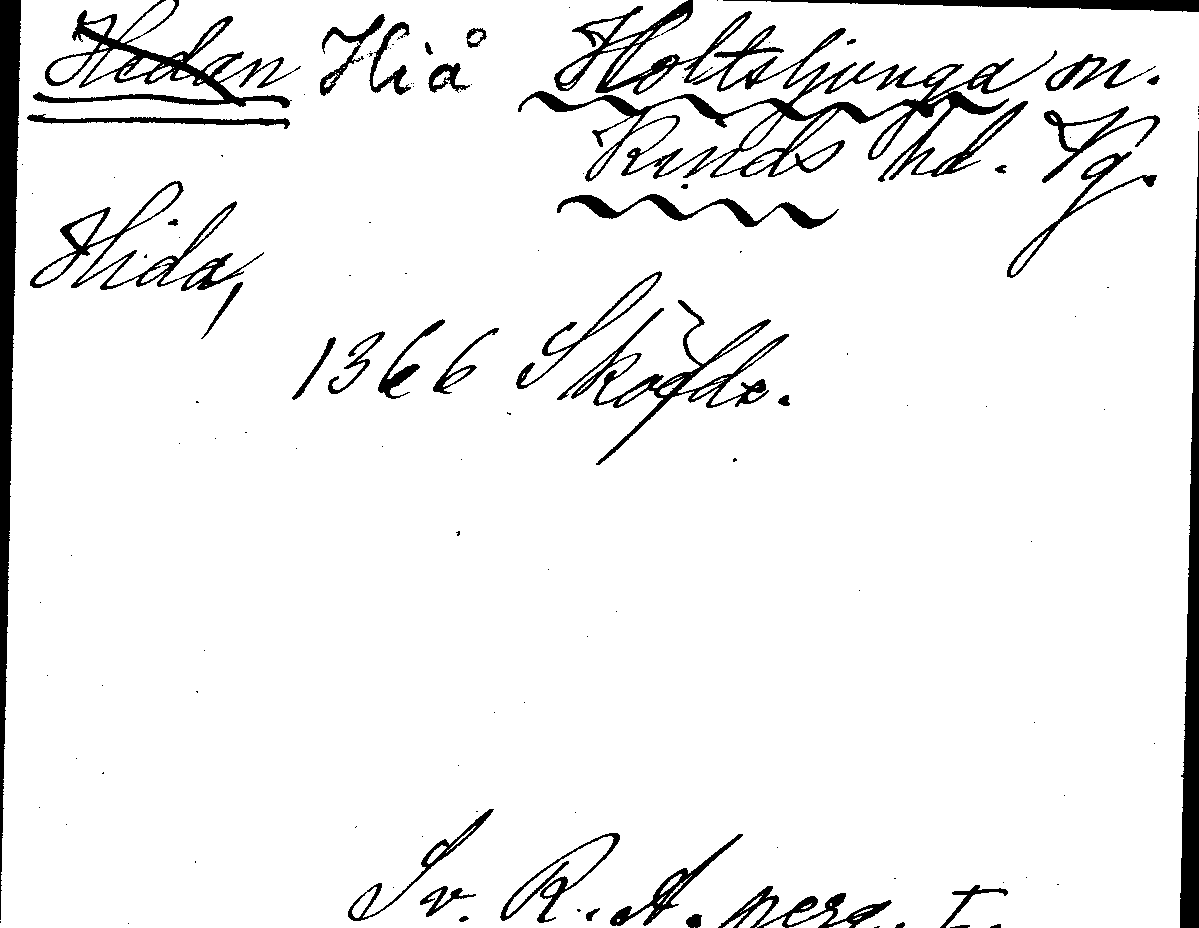 Hedan Hiå Holtsljunga sn.
Kinds hd. Vg.
Hida,
1366 Sköfde.
Sv. R. A. perg. I.